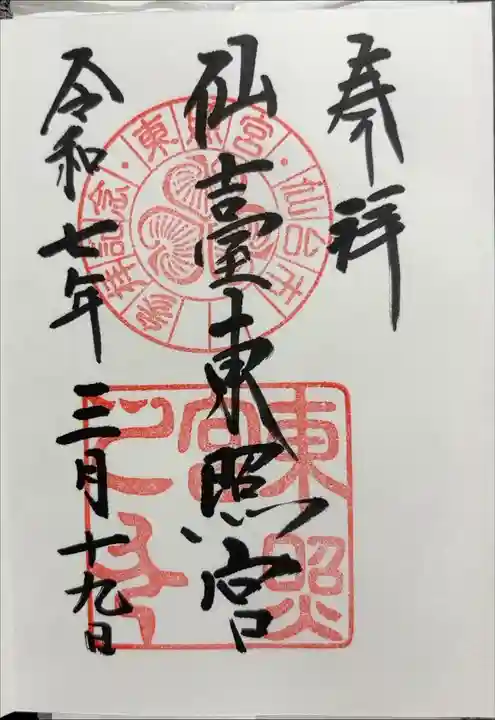 奉拝
仙臺東照宮
令和七年三月十九日
東照宮・仙台市
参拝記念
東照宮